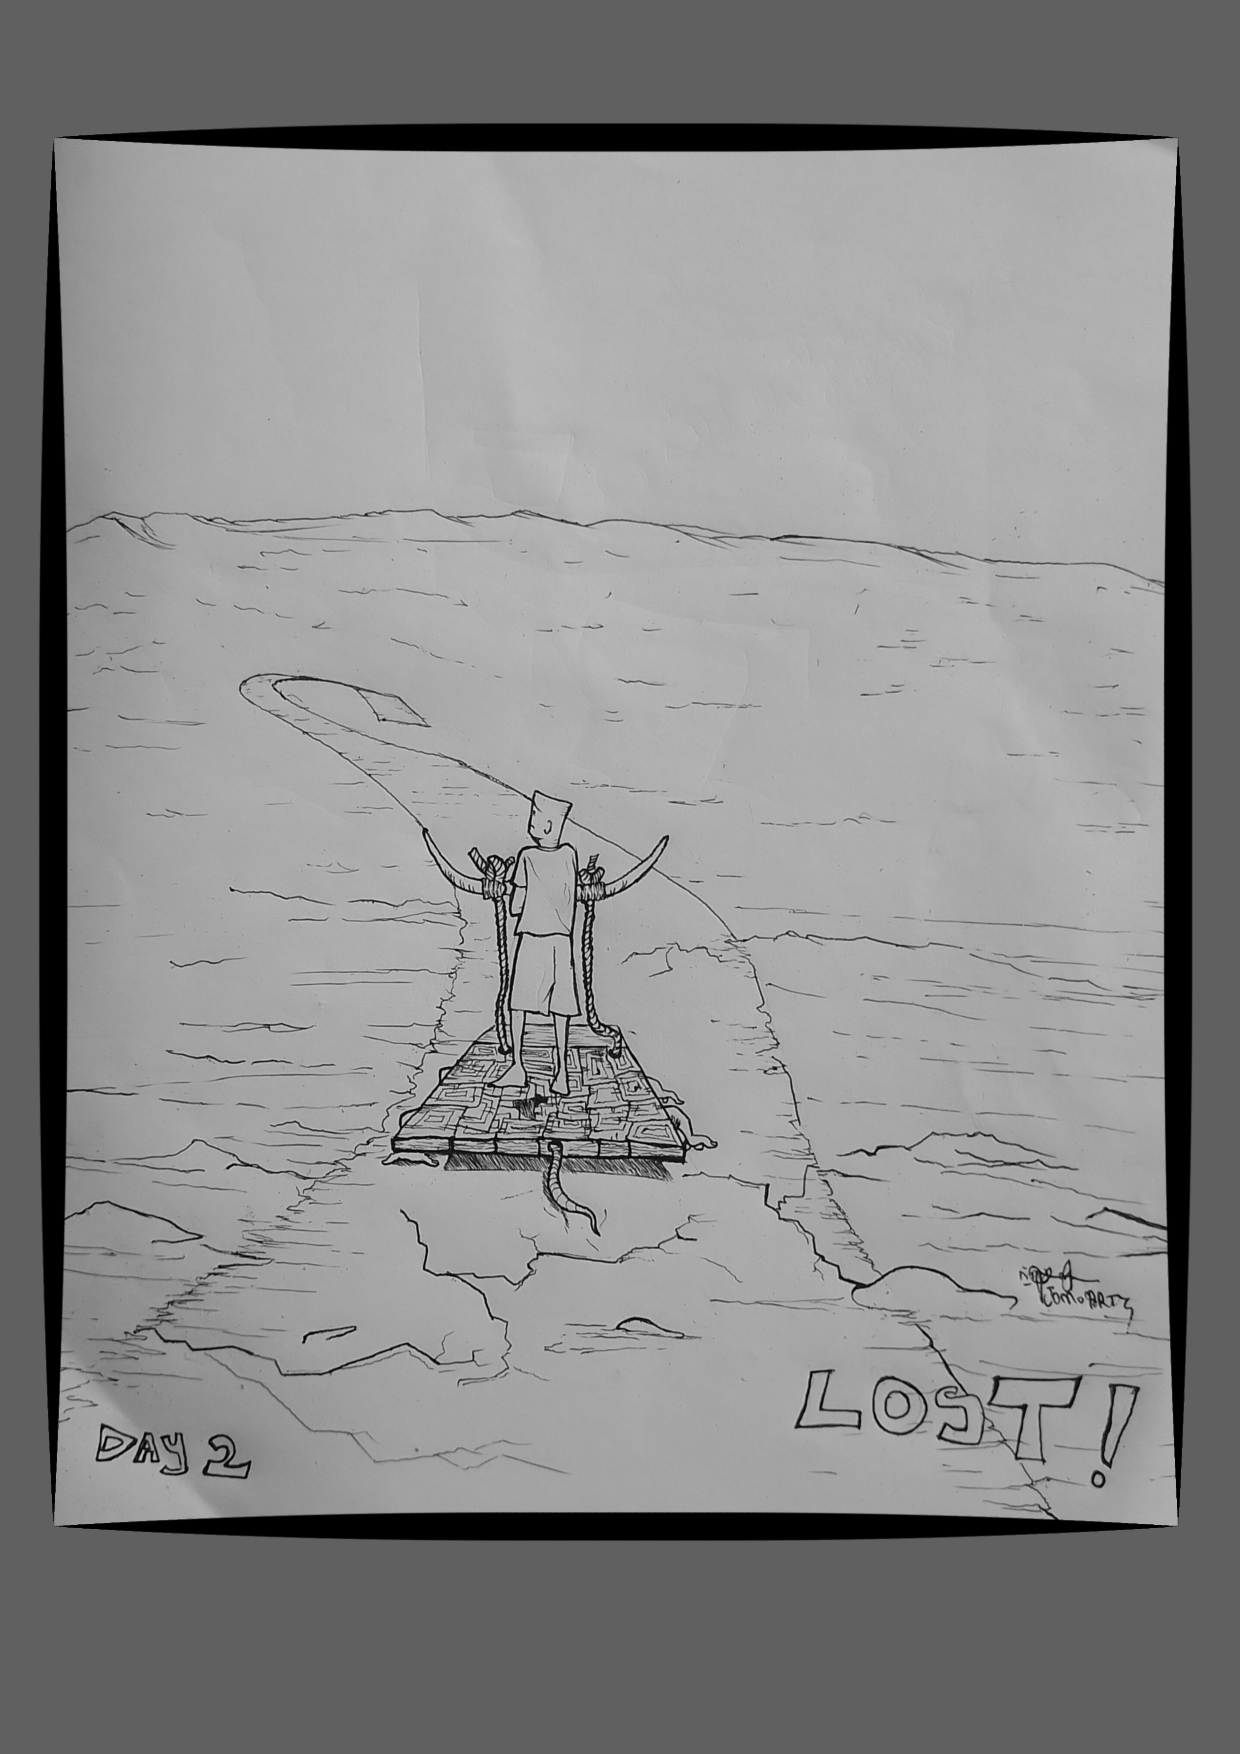 JomoARTz
LOST!
DAY 2